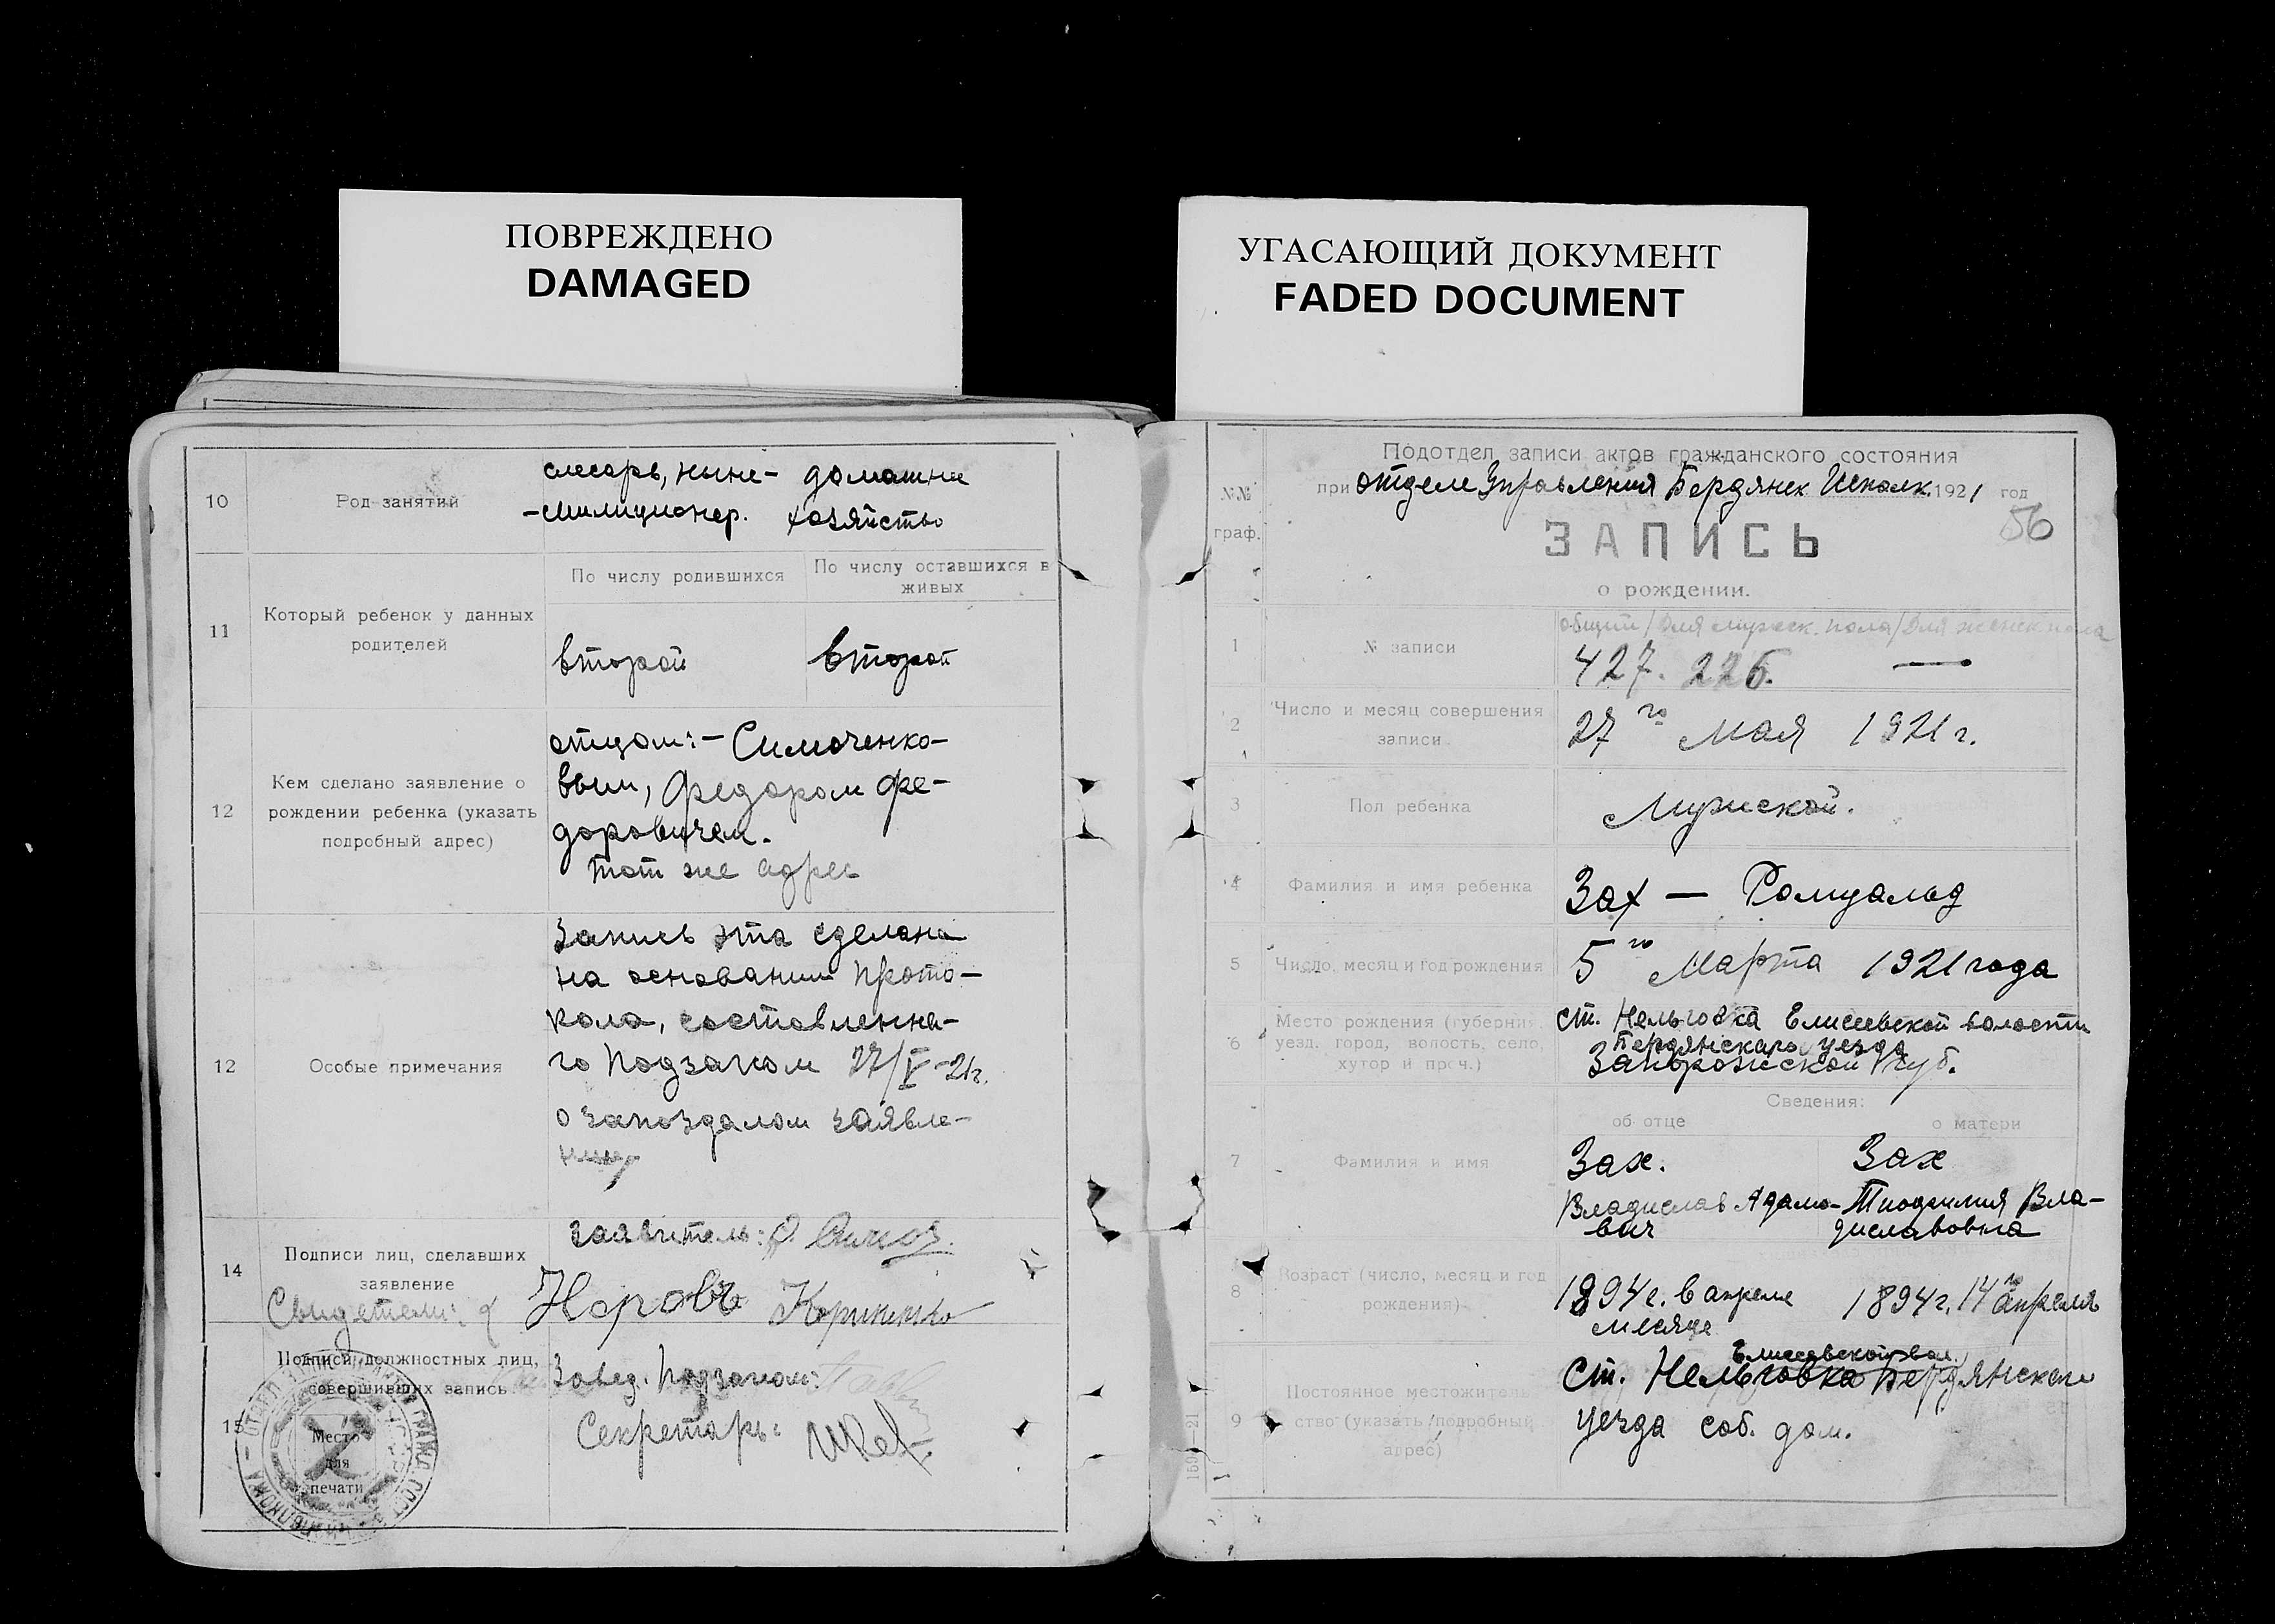 ПОВРЕЖДЕНО
DAMAGED
УГАСАЮЩИЙ ДОКУМЕНТ
FADED DOCUMENT
10
Род занятий
слесарь, ныне- домашнее
-милиционер. хозяйство
11
Который ребенок у данных
родителей
По числу родившихся
По числу оставшихся в
живых
второй
второй
12
Кем сделано заявление о
рождении ребенка (указать
подробный адрес)
отцом:- Симоченко-
вым, Федором Фе-
доровичем.
тот же адрес
12
Особые примечания
Запись эта сделана
на основании прото-
кола, составленна-
го Подзагсом 27/V-21г.
о запоздалом заявле-
нии
14
Подписи лиц, сделавших
заявление
заявитель:
Свидетели:
Норовъ
15
Подписи должностных лиц,
совершивших запись
Завед. Подзагсом:
Секретарь:
Место
для
печати
№№
граф.
Подотдел записи актов гражданского состояния
при отделе Управления Бердянск Исполк. 1921 год
56
ЗАПИСЬ
о рождении.
1
№ записи
общий / для мужск. пола / для женск пола
427. 226. —
2
Число и месяц совершения
записи
27го Мая 1921 г.
3
Пол ребенка
Мужской.
4
Фамилия и имя ребенка
Зах — Ромуальд
5
Число, месяц и год рождения
5го Марта 1921 года
6
Место рождения (губерния,
уезд, город, волость, село,
хутор и проч.)
ст. Нельговка Елисеевской волости
Бердянскаго уезда
Запорожской губ.
Сведения:
об отце
о матери
7
Фамилия и имя
Зах.
Зах
Владислав Адамо-
вич
Тиофилия Вла-
диславовна
8
Возраст (число, месяц и год
рождения)
1894 г. в апреле
месяце
1894 г. 14го апреля
9
Постоянное местожитель
ство (указать подробный
адрес)
Елисеевской вол.
ст. Нельговка Бердянскаго
уезда соб. дом.